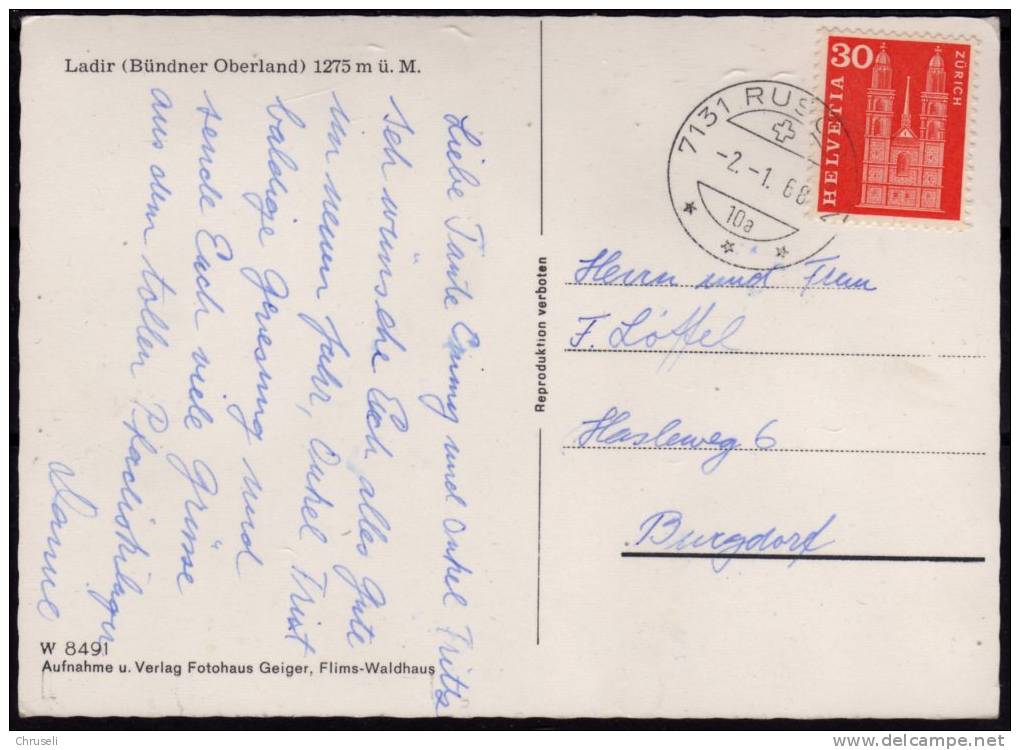 Ladir (Bündner Oberland) 1275 m ü. M.
Liebe Tante Emmy und Onkel Fritz
Ich wünsche Euch alles Gute
im neuen Jahr, Onkel Frist
baldige Genesung und
sende Euch viele Grüsse
aus dem tollen
W 8491
Aufnahme u. Verlag Fotohaus Geiger, Flims-Waldhaus
Reproduktion verboten
7131 RUSC
-2.-1.68
10a
30
HELVETIA
ZÜRICH
Herrn und Frau
F. Löffel
Hasleweg 6
Burgdorf
Copyright : Chruseli
www.delcampe.net